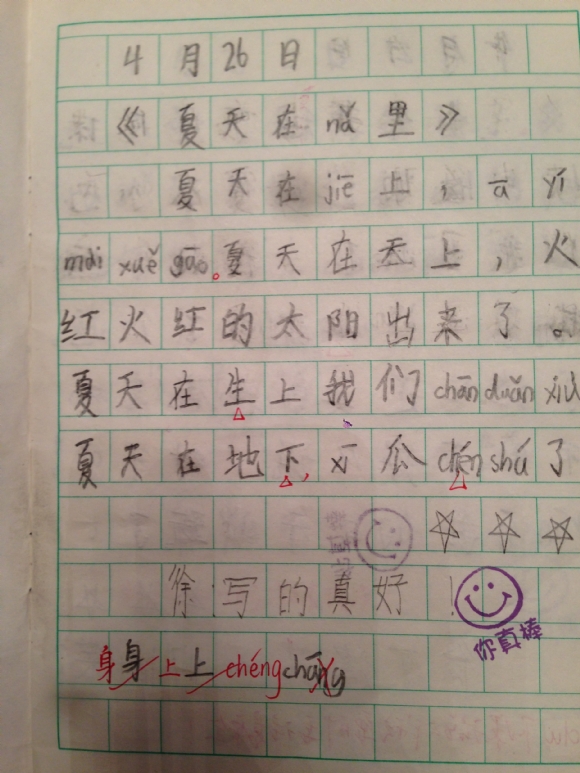 4月26日
《夏天在nǎ里》
夏天在jiē上，ā yí
mǎi xuě gāo。夏天在天上，火
红火红的太阳出来了。
夏天在生上我们chān duǎn xiù
夏天在地下，xī瓜chén shú了
☆☆☆
徐写的真好！
你真棒
身身上上chéng chāng